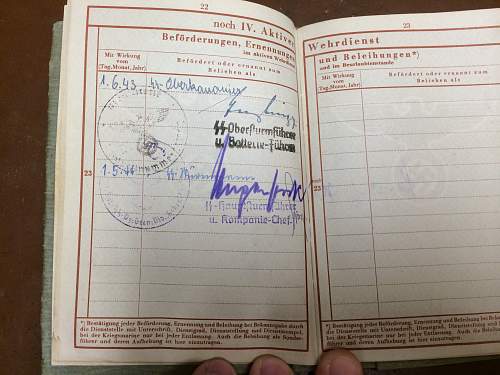 22
noch IV. Aktiver
Beförderungen, Ernennungen
im aktiven Wehrdienst
Mit Wirkung vom
(Tag, Monat, Jahr)
Befördert oder ernannt zum
Beliehen als
1.6.43 SS-Oberkanonier
SS-Obersturmführer
u. Batterie-Führer
23
1.5.44
SS-Hauptsturmführer
u. Kompanie-Chef
*) Bestätigung jeder Beförderung, Ernennung und Beleihung bei Bekanntgabe durch
die Dienststelle mit Unterschrift, Dienstgrad, Dienststellung und Dienststempel,
bei der Kriegsmarine nur bei jeder Entlassung. Auch die Beleihung als Sonder-
führer und deren Aufhebung ist hier einzutragen.
23
Wehrdienst
und Beleihungen*)
und im Beurlaubtenstande
Mit Wirkung vom
(Tag, Monat, Jahr)
Befördert oder ernannt zum
Beliehen als
23
*) Bestätigung jeder Beförderung, Ernennung und Beleihung bei Bekanntgabe durch
die Dienststelle mit Unterschrift, Dienstgrad, Dienststellung und Dienststempel,
bei der Kriegsmarine nur bei jeder Entlassung. Auch die Beleihung als Sonder-
führer und deren Aufhebung ist hier einzutragen.